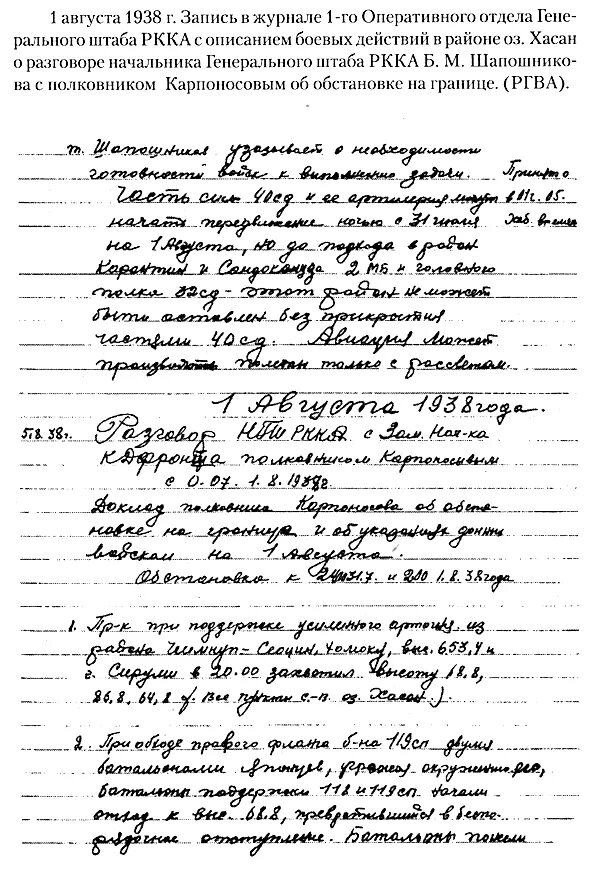 1 августа 1938 г. Запись в журнале 1-го Оперативного отдела Гене-
рального штаба РККА с описанием боевых действий в районе оз. Хасан
о разговоре начальника Генерального штаба РККА Б. М. Шапошнико-
ва с полковником Карпоносовым об обстановке на границе. (РГВА).
т. Шапошников указывает о необходимости
готовности войск к выполнению задачи. Принято
Часть сил 40сд и ее артиллерия могут в 01ч. 05.
начать передвижение ночью с 31 июля Хаб. время
на 1 Августа, но до подхода в район
Карантин и Сандоканда 2 МБ и головного
полка 32сд - этот район не может
быть оставлен без прикрытия
частями 40сд. Авиация может
производить только с рассветом.
1 Августа 1938 года.
5.8.38г. Разговор НГШ РККА с Зам. Нач-ка
КДфронта полковником Карпоносовым
с 0.07. 1.8.1938г
Доклад полковника Карпоносова об обста-
новке на границе и об указаниях
войскам на 1 Августа.
Обстановка к 31.7. и 1.8.38года
1. Пр-к при поддержке усиленного артогня из
района вые. 653,4 и
г. Сируми в 20.00 захватил высоту 68,8,
86,8, 64,8 (Все пункты с-п. оз. Хасан).
2. При обходе правого фланга б-на 119сп двумя
батальонами японцев, окружения
батальоны поддержки 118 и 119сп начали
отход к выс. 68.8, превратившийся в беспо-
рядочное отступление. Батальоны понесли